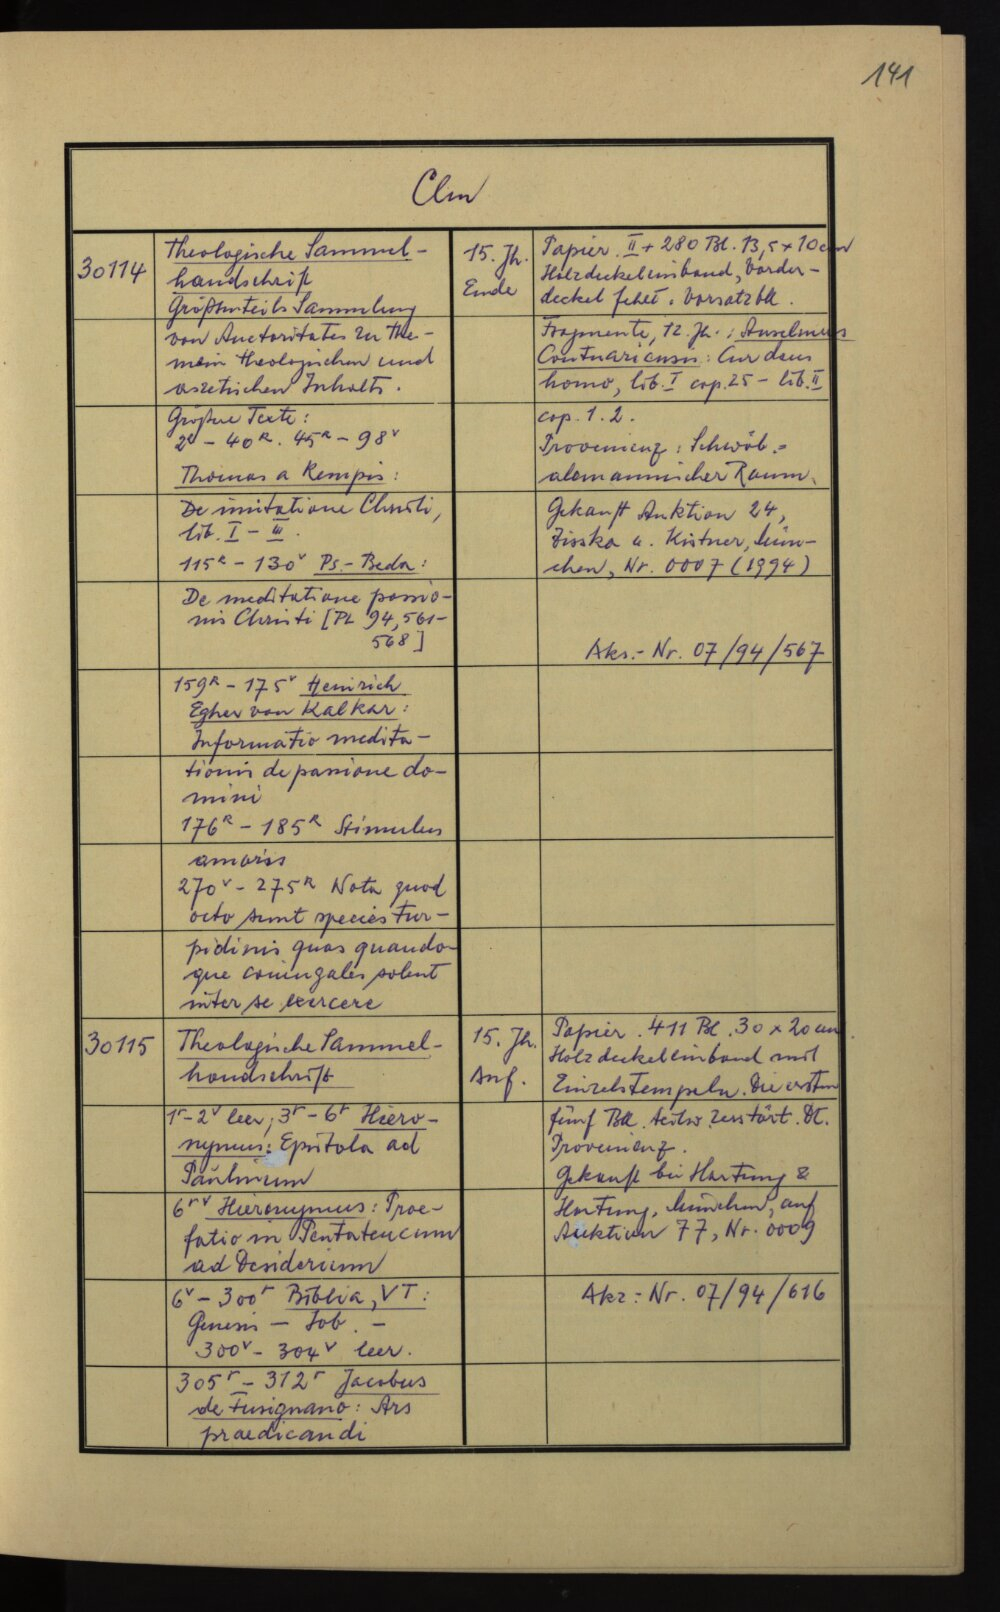 141
Clm
30114
Theologische Sammel-
handschrift
Größtenteils Sammlung
von Auctoritates zu The-
men theologischen und
aszetischen Inhalts.
Größere Texte:
2r - 40R. 45R - 98v
Thomas a Kempis:
De imitatione Christi,
lib. I - III.
115R - 130v Ps.-Beda:
De meditatione passio-
nis Christi [PL 94, 561-
568]
159R - 175v Heinrich
Egher von Kalkar:
Informatio medita-
tionis de passione do-
mini
176R - 185R Stimulus
amoris
270v - 275R Nota quod
octo sunt species tur-
pidinis quas quando-
que coniugales solent
inter se exercere
15. Jh.
Ende
Papier. II + 280 Bl. 13,5 x 10 cm
Holzdeckeleinband, Vorder-
deckel fehlt. Vorsatzbll.
Fragmente, 12. Jh.: Anselmus
Cantuariensis: Cur deus
homo, lib. I cap. 25 - lib. II
cap. 1. 2.
Provenienz: Schwäb.-
alemannischer Raum.
Gekauft Auktion 24,
Zisska u. Kistner, Mün-
chen, Nr. 0007 (1994)
Akz.-Nr. 07/94/567
30115
Theologische Sammel-
handschrift
1r - 2v leer; 3r - 6r Hiero-
nymus: Epistola ad
Paulinum
6rv Hieronymus: Prae-
fatio in Pentateucum
ad Desiderium
6v - 300r Biblia, VT:
Genesis - Iob. -
300v - 304v leer.
305r - 312r Jacobus
de Fusignano: Ars
praedicandi
15. Jh.
Anf.
Papier. 411 Bl. 30 x 20 cm
Holzdeckeleinband mit
Einzelstempeln. Die ersten
fünf Bll. teilw. zerstört. Dt.
Provenienz.
Gekauft bei Hartung &
Hartung, München, auf
Auktion 77, Nr. 0009
Akz.-Nr. 07/94/616